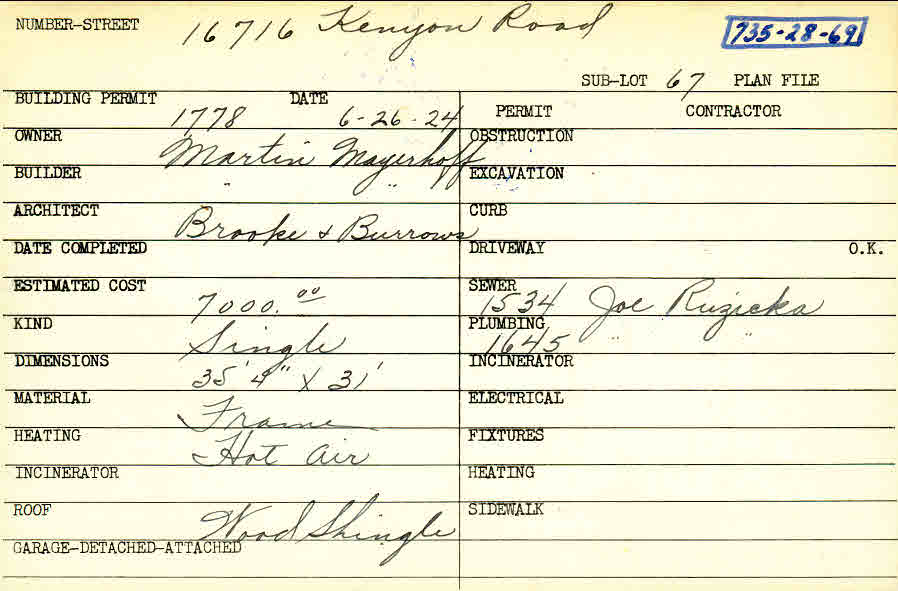 NUMBER-STREET 16716 Kenyon Road 735-28-69
SUB-LOT 67 PLAN FILE
BUILDING PERMIT 1778 DATE 6-26-24 PERMIT CONTRACTOR
OWNER Martin Mayerhoff OBSTRUCTION
BUILDER " " EXCAVATION
ARCHITECT Brooke & Burrows CURB
DATE COMPLETED DRIVEWAY O.K.
ESTIMATED COST 7000.00 SEWER 1534 Joe Ruzicka
KIND Single PLUMBING 1645 " "
DIMENSIONS 35'4" X 31' INCINERATOR
MATERIAL Frame ELECTRICAL
HEATING Hot Air FIXTURES
INCINERATOR HEATING
ROOF Wood Shingle SIDEWALK
GARAGE-DETACHED-ATTACHED